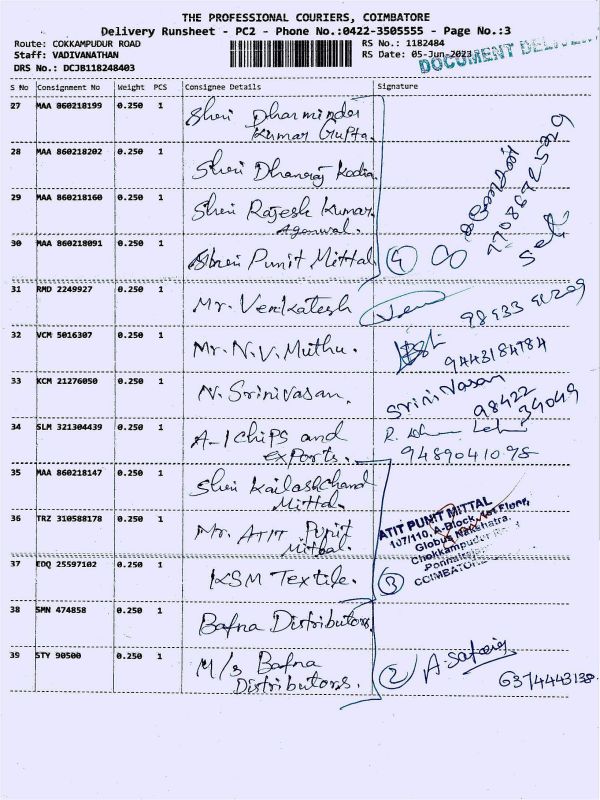 THE PROFESSIONAL COURIERS, COIMBATORE
Delivery Runsheet - PC2 - Phone No.:0422-3505555 - Page No.:3
Route: COKKAMPUDUR ROAD RS No.: 1182484
Staff: VADIVANATHAN RS Date: 05-Jun-2023
DRS No.: DCJB118248403
DOCUMENT DELIVER
S No Consignment No Weight PCS Consignee Details Signature
27 MAA 860218199 0.250 1 Shri Dharminder
Kumar Gupta.
28 MAA 860218202 0.250 1 Shri Dhanraj Kodia.
29 MAA 860218160 0.250 1 Shri Rajesh Kumar.
Agarwal.
30 MAA 860218091 0.250 1 Shri Punit Mittal. 4
31 RMD 2249927 0.250 1 Mr. Venkatesh
32 VCM 5016307 0.250 1 Mr. N.V. Muthu. 9443184984
33 KCM 21276050 0.250 1 N. Srinivasan. Srinivasan
98422
34049
34 SLM 321304439 0.250 1 A-1 Chips and
exports. 9489041098
35 MAA 860218147 0.250 1 Shri Kailashchand
Mittal.
36 TRZ 310588178 0.250 1 Mr. ATIT Punit
Mittal.
ATIT PUNIT MITTAL
107/110, A-Block, 1st Floor,
Globus Nakshatra,
Chokkampudur
COIMBATORE
37 EDQ 25597102 0.250 1 KSM Textile. 3
38 SMN 474858 0.250 1 Bafna Distributors.
39 STY 90500 0.250 1 M/s Bafna
Distributors. 2 6374443138